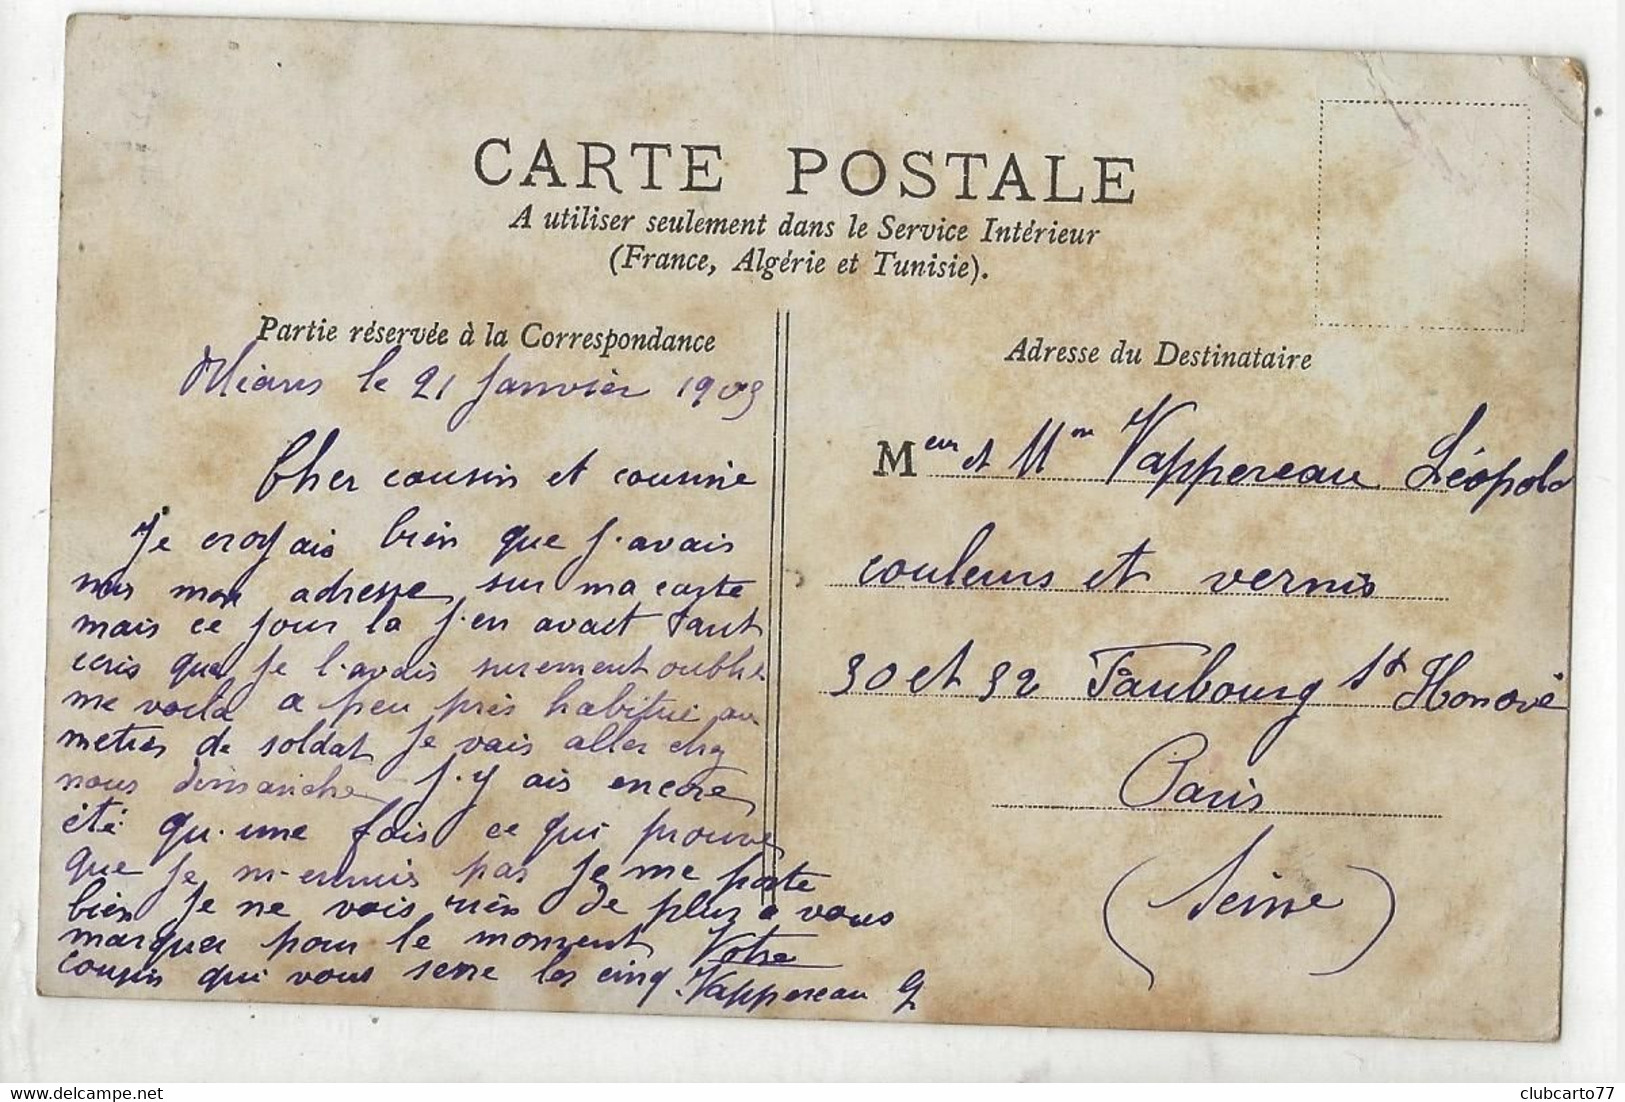 CARTE POSTALE
A utiliser seulement dans le Service Intérieur
(France, Algérie et Tunisie).
Partie réservée à la Correspondance
le 21 Janvier 1903
Cher cousin et cousine
Je croyais bien que j'avais
mis mon adresse sur ma carte
mais ce jour la j'en avait tant
ecris que je l'avais surement oublié
me voila a peu près habitué au
metier de soldat je vais aller chez
nous dimanche j'y ais encore
été qu'une fois ce qui prouve
que je m'ennuis pas je me porte
bien je ne vois rien de plus a vous
marquer pour le moment Votre
cousin qui vous serre les cinq. Vappereau G
Adresse du Destinataire
Meur et Mme Vappereau Léopold
couleurs et vernis
30 et 32 Faubourg St Honoré
Paris
(Seine)
clubcarto77